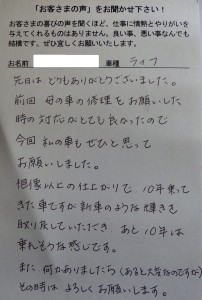 「お客さまの声」をお聞かせ下さい！
お客さまの喜びの声を聞くほど、仕事に情熱とやりがいを
与えてくれるものはありません。良い事、悪い事なんでも
結構です。ぜひ宜しくお願いいたします。
お名前 車種 ライフ
先日は どうもありがとうございました。
前回 母の車の修理をお願いした
時の対応がとても良かったので
今回 私の車もぜひと思って
お願いしました。
想像以上の仕上がりで、10年乗って
きた車ですが新車のような輝きを
取り戻していただき あと10年は
乗れそうな感じです。
また 何かありましたら(あると大変なのですが)
その時は よろしくお願いします。